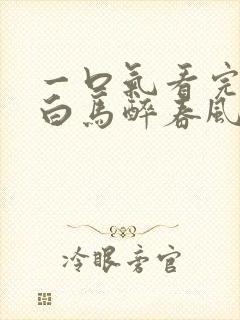 一口氣看完
白馬醉春風
冷眼旁官